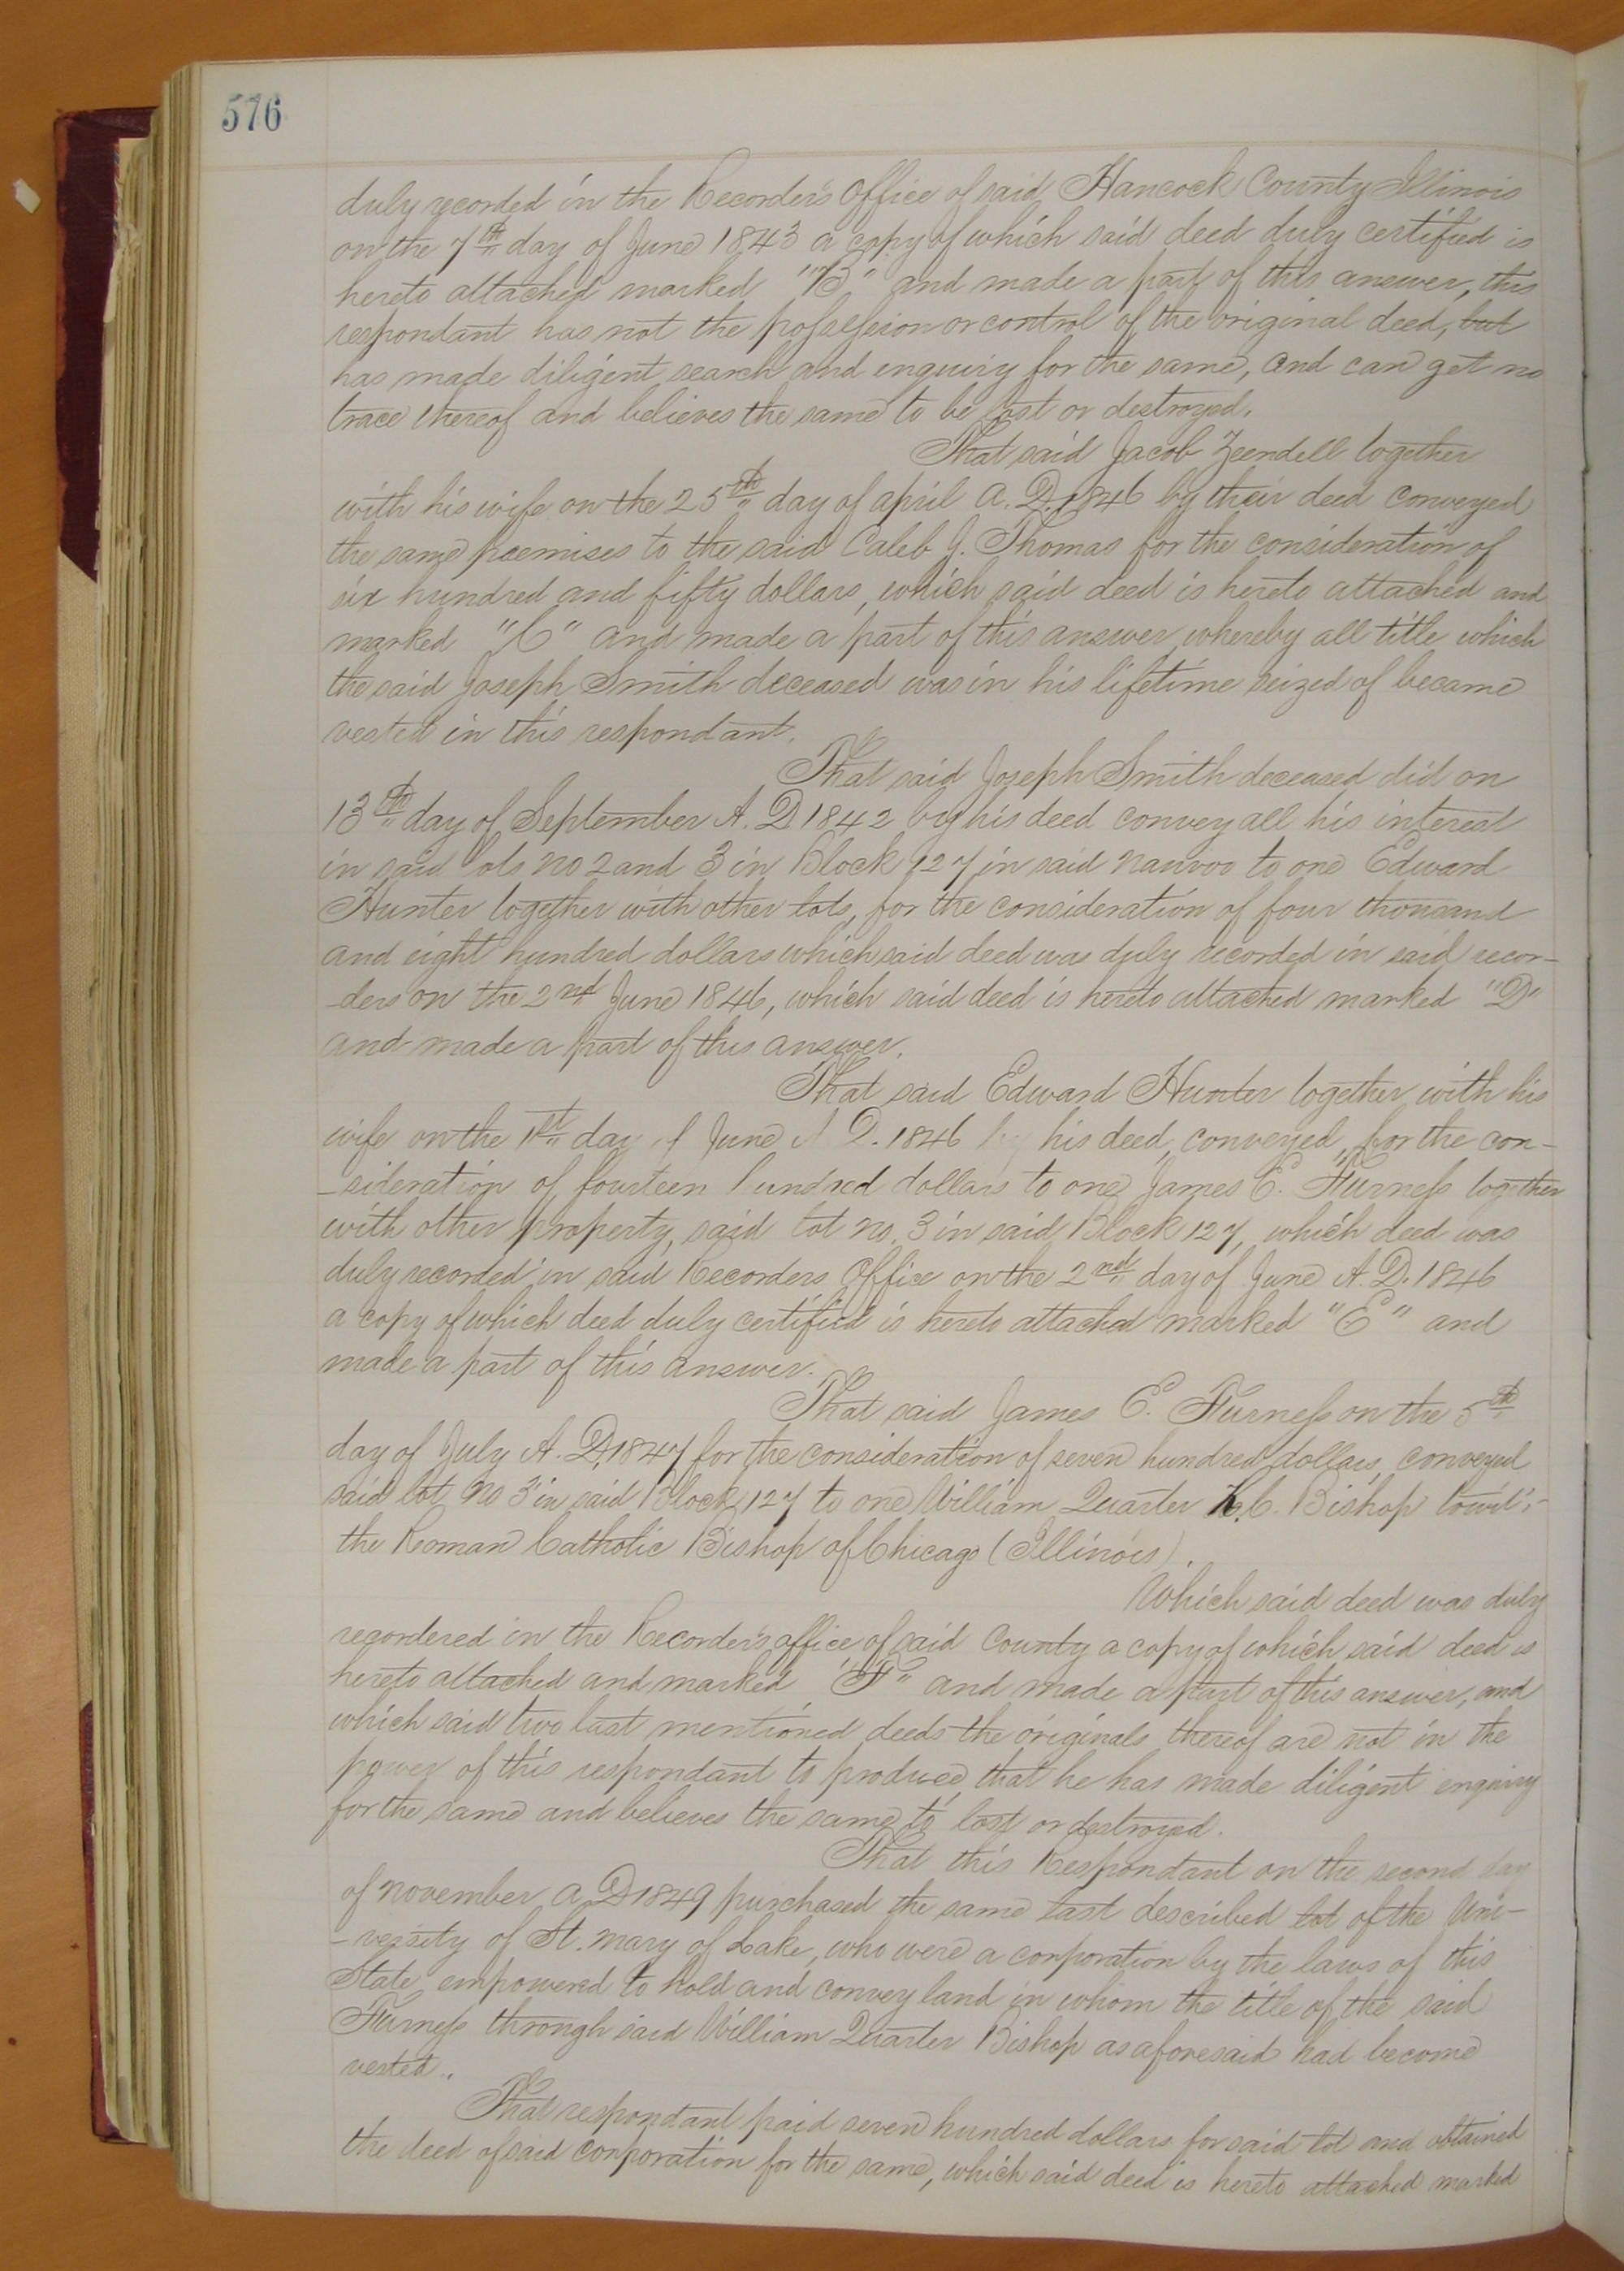 576
duly recorded in the Recorder's Office of said Hancock County Illinois
on the 7th day of June 1843 a copy of which said deed duly certified is
hereto attached marked "B" and made a part of this answer, this
respondant has not the possession or control of the original deed, but
has made diligent search and enquiry for the same, and can get no
trace thereof and believes the same to be lost or destroyed.
That said Jacob together
with his wife on the 25th day of april A. D. 1846 by their deed conveyed
the same premises to the said Caleb J. Thomas for the consideration of
six hundred and fifty dollars, which said deed is hereto attached and
marked "C" and made a part of this answer, whereby all title which
the said Joseph Smith deceased was in his lifetime seized of became
vested in this respondant.
That said Joseph Smith deceased did on
13th day of September A. D 1842 by his deed convey all his interest
in said lots no 2 and 3 in Block 127 in said nauvoo to one Edward
Hunter together with other lots, for the consideration of four thousand
and eight hundred dollars which said deed was duly recorded in said recor-
-ders on the 2nd June 1846, which said deed is hereto attached marked "D"
and made a part of this answer.
That said Edward Hunter together with his
wife on the 1st day of June A D. 1846 by his deed, conveyed, for the con-
-sideration of fourteen hundred dollars to one James E. Furness together
with other property, said lot no. 3 in said Block 127, which deed was
duly recorded in said Recorders Office on the 2nd day of June A. D. 1846
a copy of which deed duly certified is hereto attached marked "E" and
made a part of this answer.
That said James E. Furness on the 5th
day of July A. D. 1847 for the consideration of seven hundred dollars, conveyed
said lot no 3 in said Block 127 to one William Quarter R.C. Bishop towit:-
the Roman Catholic Bishop of Chicago (Illinois).
Which said deed was duly
recordered in the Recorder's office of said County a copy of which said deed is
hereto attached and marked "F" and made a part of this answer, and
which said two last mentioned deeds the originals thereof are not in the
power of this respondant to produce, that he has made diligent enquiry
for the same and believes the same to lost or destroyed.
That this Respondant on the second day
of november A D 1849 purchased the same last described lot of the Uni-
-versity of St. Mary of Lake, who were a corporation by the laws of this
State empowered to hold and convey land in whom the title of the said
Furness through said William Quarter Bishop as aforesaid had become
vested.
That respondant paid seven hundred dollars for said lot and obtained
the deed of said corporation for the same, which said deed is hereto attached marked